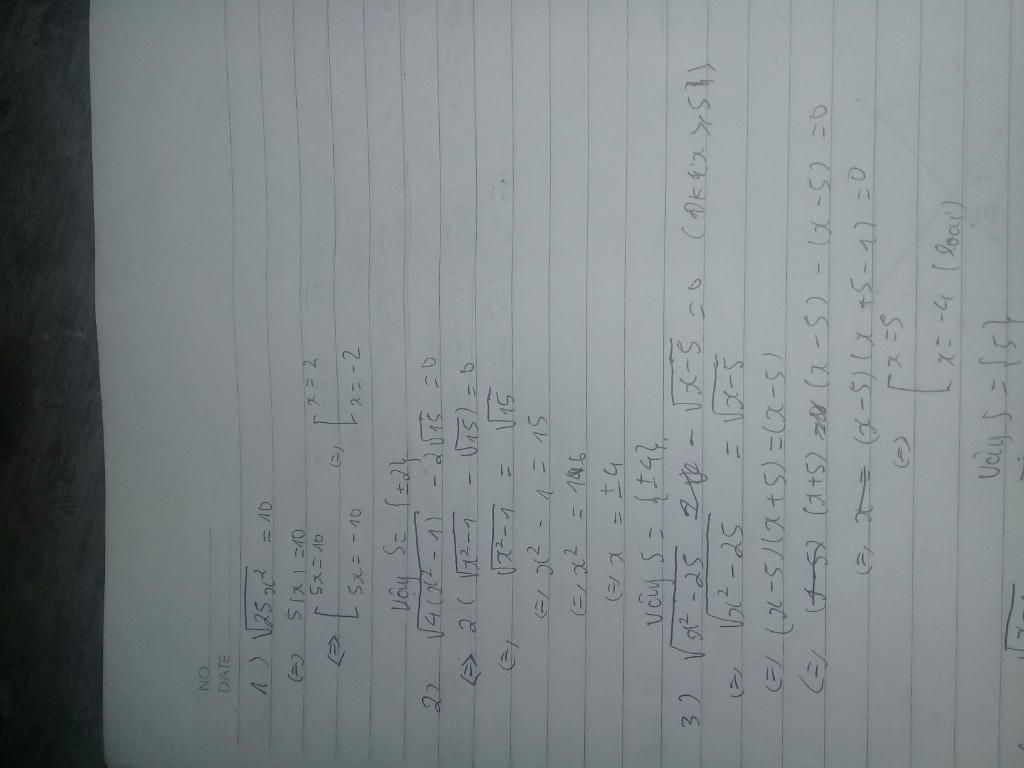 NO
DATE
1) √25x² = 10
(=) 5|x| = 10
<=> [ 5x = 10 (=) [ x = 2
[ 5x = -10 [ x = -2
Vậy S = {±2}
2) √4(x² - 1) - 2√15 = 0
<=> 2(√x²-1 - √15) = 0
(=) √x²-1 = √15
(=) x² - 1 = 15
(=) x² = 16
(=) x = ±4
Vậy S = {±4}
3) √x² - 25 - √x-5 = 0 (ĐK: x ≥ 5)
(=) √x² - 25 = √x-5
(=) (x-5)(x+5) = (x-5)
(=) (x+5)(x-5) - (x-5) = 0
(=) (x-5)(x+5-1) = 0
(=) [ x = 5
[ x = -4 (loại)
Vậy S = {5}